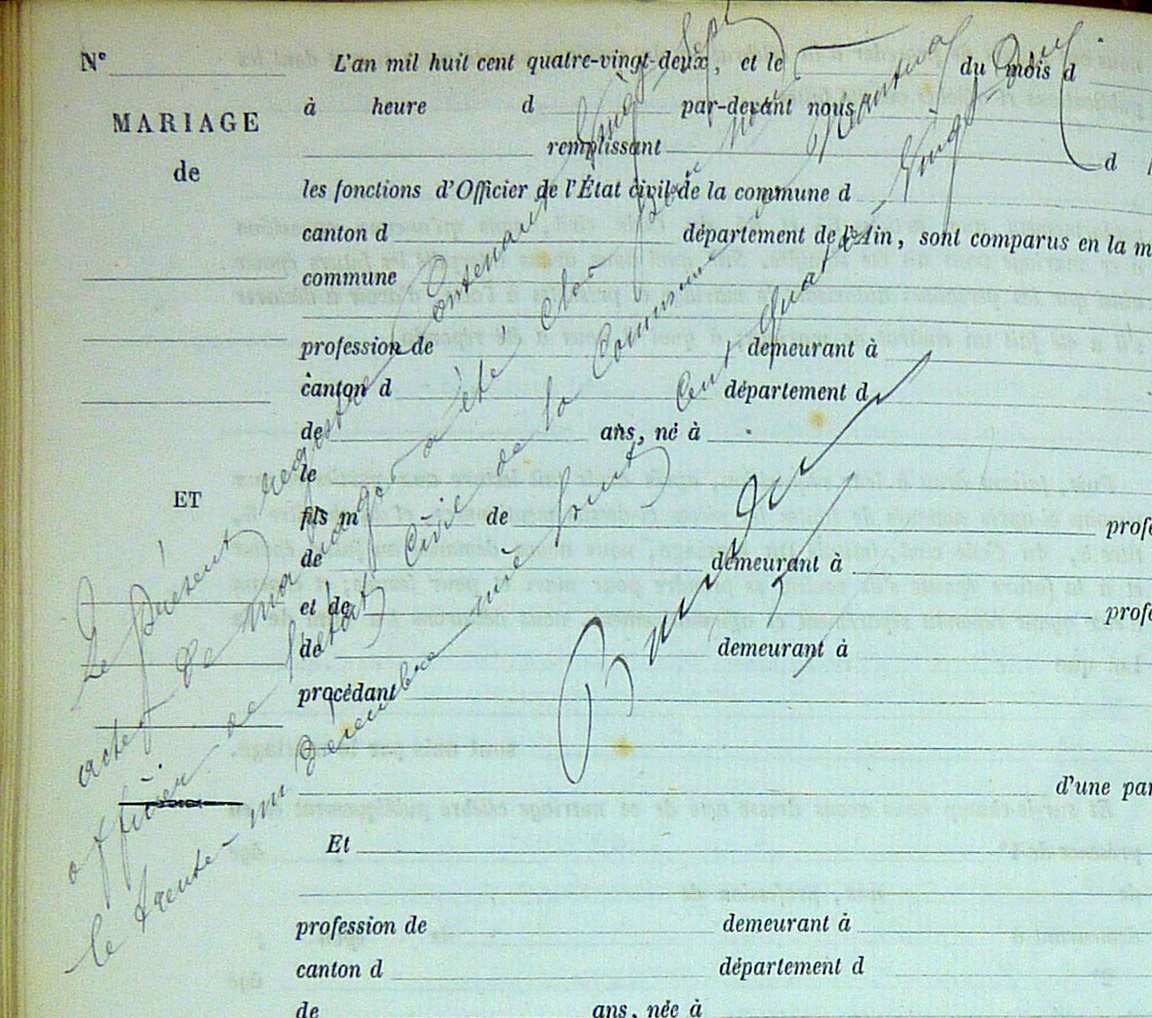 N° L'an mil huit cent quatre-vingt-deux, et le du mois d
à heure d par-devant nous
MARIAGE
remplissant d
de
les fonctions d'Officier de l'État civil de la commune d
canton d département de l'Ain, sont comparus en la m
commune
profession de demeurant à
canton d département d
de ans, né à
le
ET
fils m de profe
de demeurant à
et de profe
de demeurant à
procédant
d'une par
Et
profession de demeurant à
canton d département d
de ans, née à
Le présent registre contenant vingt sept
actes de mariage a été clos par nous
officier de l'état civil de la commune de
le trente-un décembre mil huit cent quatre-vingt